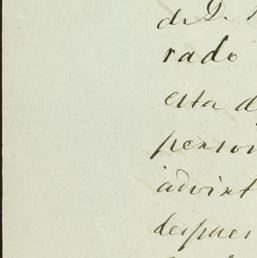 de D.
rado
esta d
person
advirt
despues